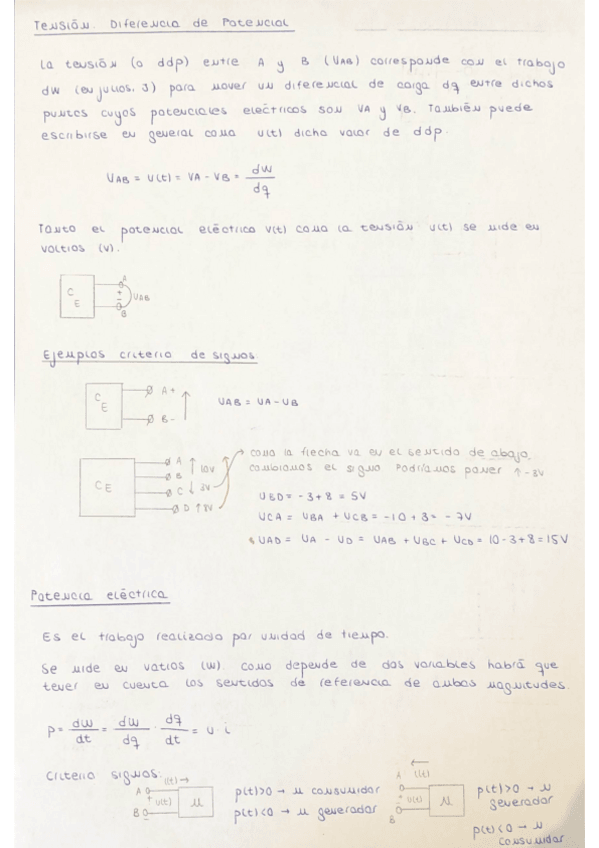 Tensión. Diferencia de Potencial
La tensión (o ddp) entre A y B (UAB) corresponde con el trabajo
dW (en julios, J) para mover un diferencial de carga dq entre dichos
puntos cuyos potenciales eléctricos son VA y VB. También puede
escribirse en general como u(t) dicho valor de ddp.
UAB = U(t) = VA - VB = dW/dq
Tanto el potencial eléctrico V(t) como la tensión u(t) se mide en
voltios (V).
CE A + - B UAB
Ejemplos criterio de signos
CE A+ B- UAB = UA - UB
CE A B C D ↑ 10V ↓ 3V ↑ 8V
como la flecha va en el sentido de abajo,
cambiamos el signo. Podríamos poner ↑ -3V
UBD = -3+8 = 5V
UCA = UBA + UCB = -10 + 3 = -7V
UAD = UA - UD = UAB + UBC + UCD = 10-3+8 = 15V
Potencia eléctrica
Es el trabajo realizado por unidad de tiempo.
Se mide en vatios (W) como depende de dos variables habrá que
tener en cuenta los sentidos de referencia de ambas magnitudes.
P = dW/dt = dW/dq · dq/dt = u · i
Criterio signos:
i(t) → A ↑ u(t) B M
p(t)>0 → M consumidor
p(t)<0 → M generador
← i(t) A + ↑ u(t) - B M
p(t)>0 → M
generador
p(t)<0 → M
consumidor